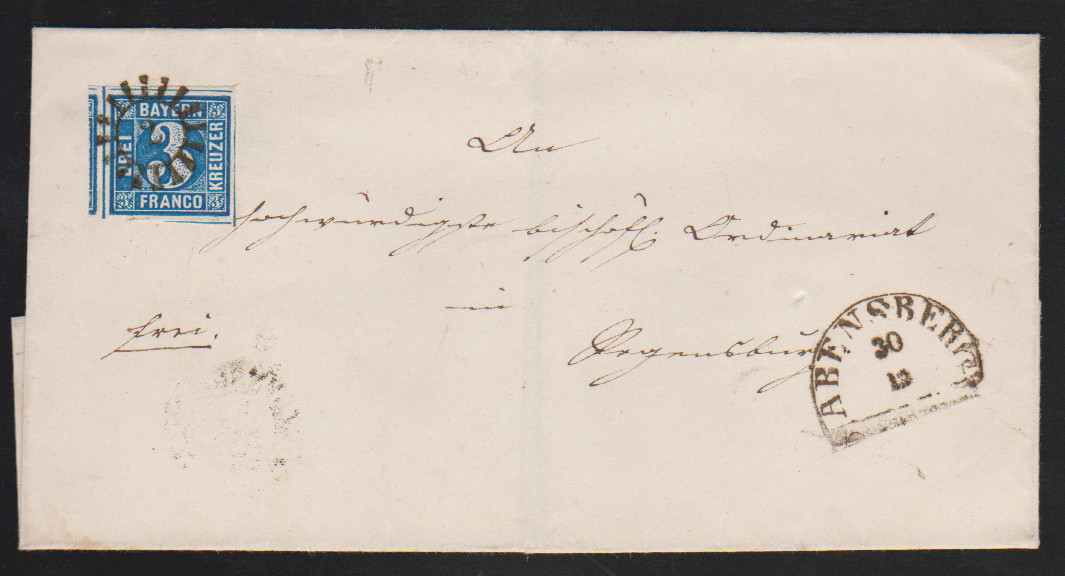 BAYERN
DREI
3
KREUZER
FRANCO
An
hochwürdigste bischöfl. Ordinariat
in
frei.
Regensburg
ABENSBERG
30
12